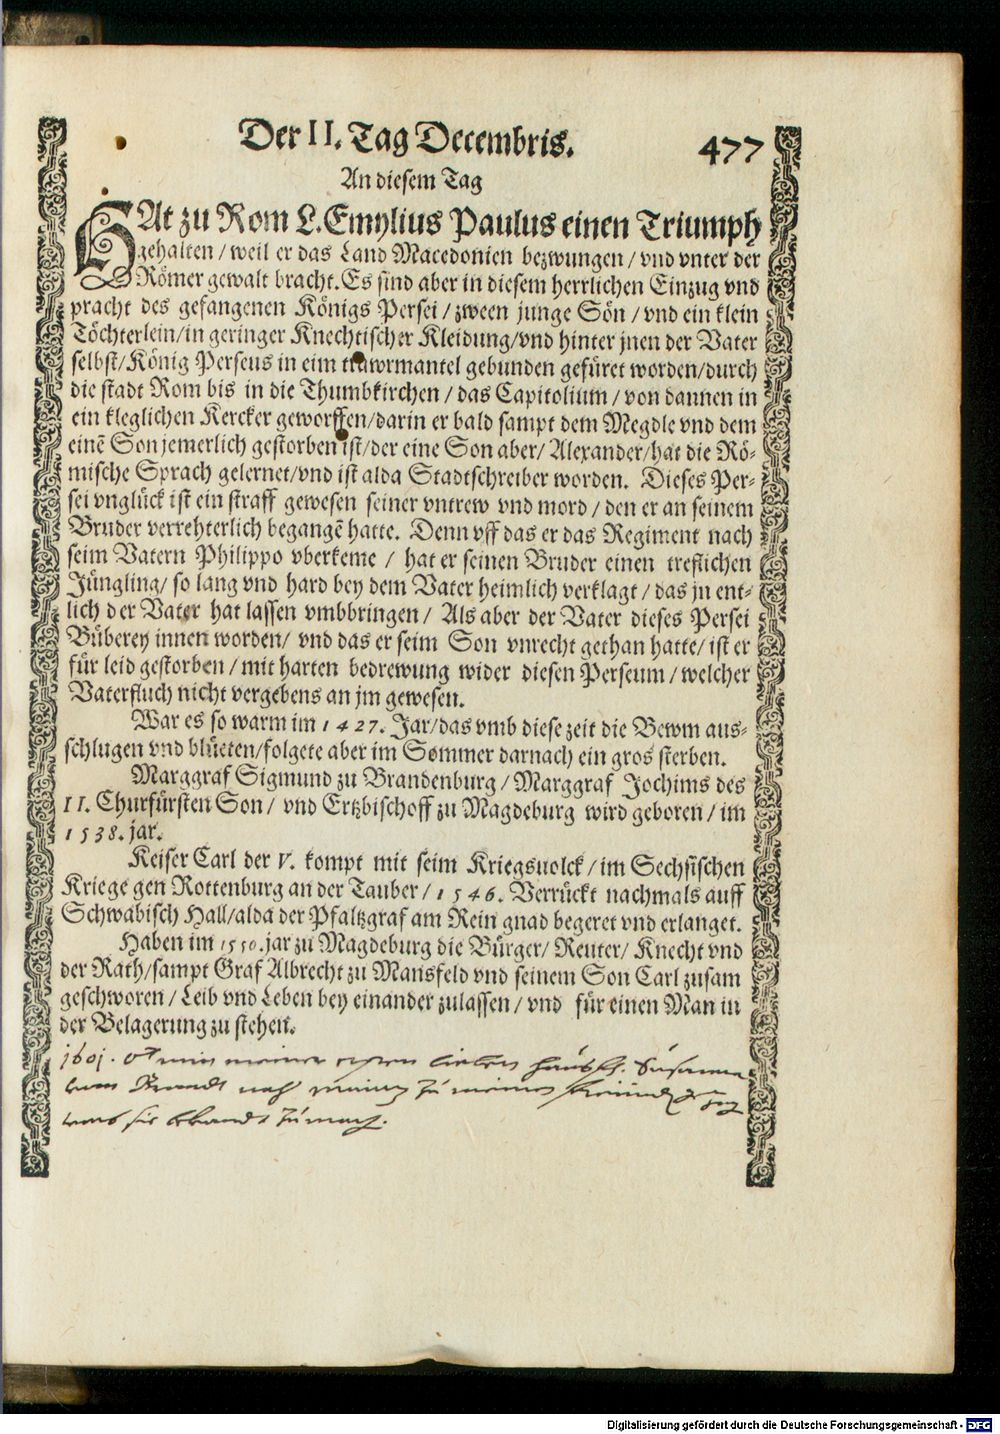 Der II. Tag Decembris. 477
An diesem Tag
HAt zu Rom L. Emylius Paulus einen Triumph
gehalten / weil er das Land Macedonien bezwungen / vnd vnter der
Römer gewalt bracht. Es sind aber in diesem herrlichen Einzug vnd
pracht des gefangenen Königs Persei / zween junge Sön / vnd ein klein
Töchterlein / in geringer Knechtischer Kleidung / vnd hinter jnen der Vater
selbst / König Perseus in eim trawrmantel gebunden gefüret worden / durch
die stadt Rom bis in die Thumbkirchen / das Capitolium / von dannen in
ein kleglichen Kercker geworffen / darin er bald sampt dem Megdle vnd dem
einē Son jemerlich gestorben ist / der eine Son aber / Alexander / hat die Rö-
mische Sprach gelernet / vnd ist alda Stadtschreiber worden. Dieses Per-
sei vnglück ist ein straff gewesen seiner vntrew vnd mord / den er an seinem
Bruder verrehterlich begangē hatte. Denn vff das er das Regiment nach
seim Vatern Philippo vberkeme / hat er seinen Bruder einen treflichen
Jüngling / so lang vnd hard bey dem Vater heimlich verklagt / das jn ent-
lich der Vater hat lassen vmbbringen / Als aber der Vater dieses Persei
Büberey innen worden / vnd das er seim Son vnrecht gethan hatte / ist er
für leid gestorben / mit harten bedrewung wider diesen Perseum / welcher
Vaterfluch nicht vergebens an jm gewesen.
War es so warm im 1427. Jar / das vmb diese zeit die Bewm aus-
schlugen vnd blüeten / folgete aber im Sommer darnach ein gros sterben.
Marggraf Sigmund zu Brandenburg / Marggraf Jochims des
II. Churfürsten Son / vnd Ertzbischoff zu Magdeburg wird geboren / im
1538. jar.
Keiser Carl der V. kompt mit seim Kriegsuolck / im Sechsischen
Kriege gen Rottenburg an der Tauber / 1546. Verrückt nachmals auff
Schwäbisch Hall / alda der Pfaltzgraf am Rein gnad begeret vnd erlanget.
Haben im 1550. jar zu Magdeburg die Bürger / Reuter / Knecht vnd
der Rath / sampt Graf Albrecht zu Mansfeld vnd seinem Son Carl zusam
geschworen / Leib vnd Leben bey einander zulassen / vnd für einen Man in
der Belagerung zu stehen.
1601.
Digitalisierung gefördert durch die Deutsche Forschungsgemeinschaft - DFG